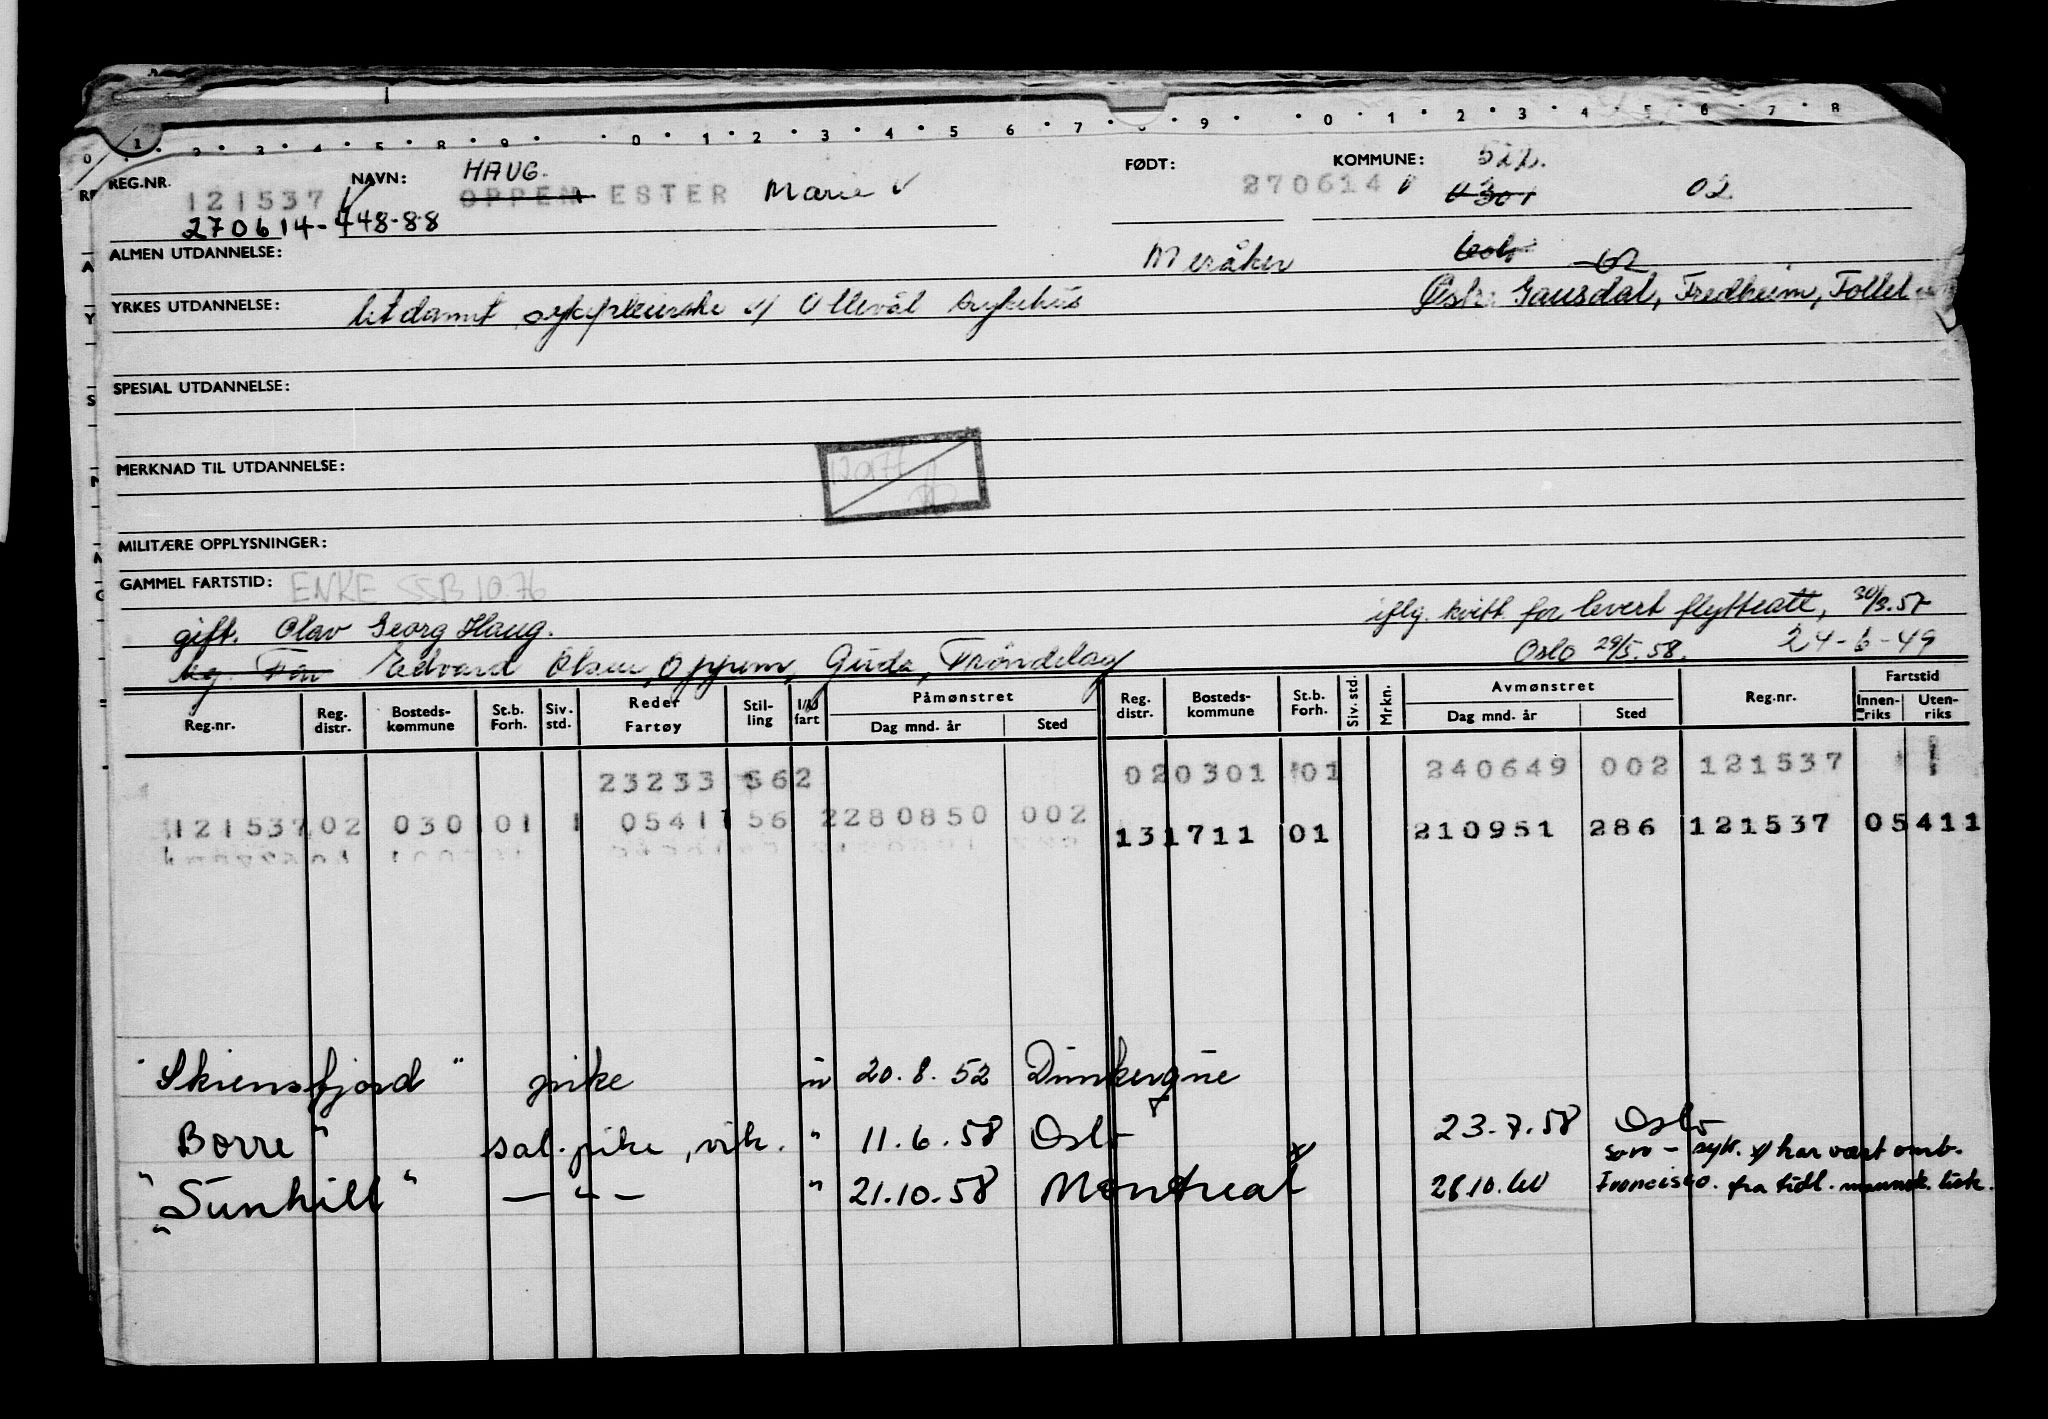 0 1 2 3 4 5 8 9 0 1 2 3 4 5 6 7 8 9 0 1 2 3 4 5 6 7 8
REG.NR. 121537 NAVN: HAUG. OPPEM ESTER Marie FØDT: 270614 KOMMUNE: 522. 0301 02
270614-448-88
ALMEN UTDANNELSE: Meråker Oslo 02
YRKES UTDANNELSE: Utdannet sykepleierske v/ Ullevål sykehus Østr. Gausdal, Fredheim, Follebu
SPESIAL UTDANNELSE:
MERKNAD TIL UTDANNELSE:
MILITÆRE OPPLYSNINGER:
GAMMEL FARTSTID: ENKE SSB 10.76
gift. Olav Georg Haug. iflg. kvitt. for levert flytteatt, 30/3.57
Ug. Far Edvard Olsen, Oppem, Guda, Trøndelag Oslo 29/5.58. 24-6-49
Reg.nr. Reg. distr. Bosteds-kommune St.b. Forh. Siv. std. Reder Fartøy Stil-ling I/U fart Påmønstret Dag mnd. år Sted Reg. distr. Bosteds-kommune St.b. Forh. Siv. std. Mrkn. Avmønstret Dag mnd. år Sted Reg.nr. Fartstid Innen-riks Uten-riks
23233 562 020301 01 240649 002 121537
121537 02 030 01 1 05411 56 2280850 002 131711 01 210951 286 121537 05411
"Skiensfjord" pike u 20.8.52 Dunkerque
Borre" sal.pike, vik. " 11.6.58 Oslo 23.7.58 Oslo
"Sunhill" — " — " 21.10.58 Montreal x 26.10.60 San Francisco. - syk. x) har vært omb. fra tidl. mønstr.